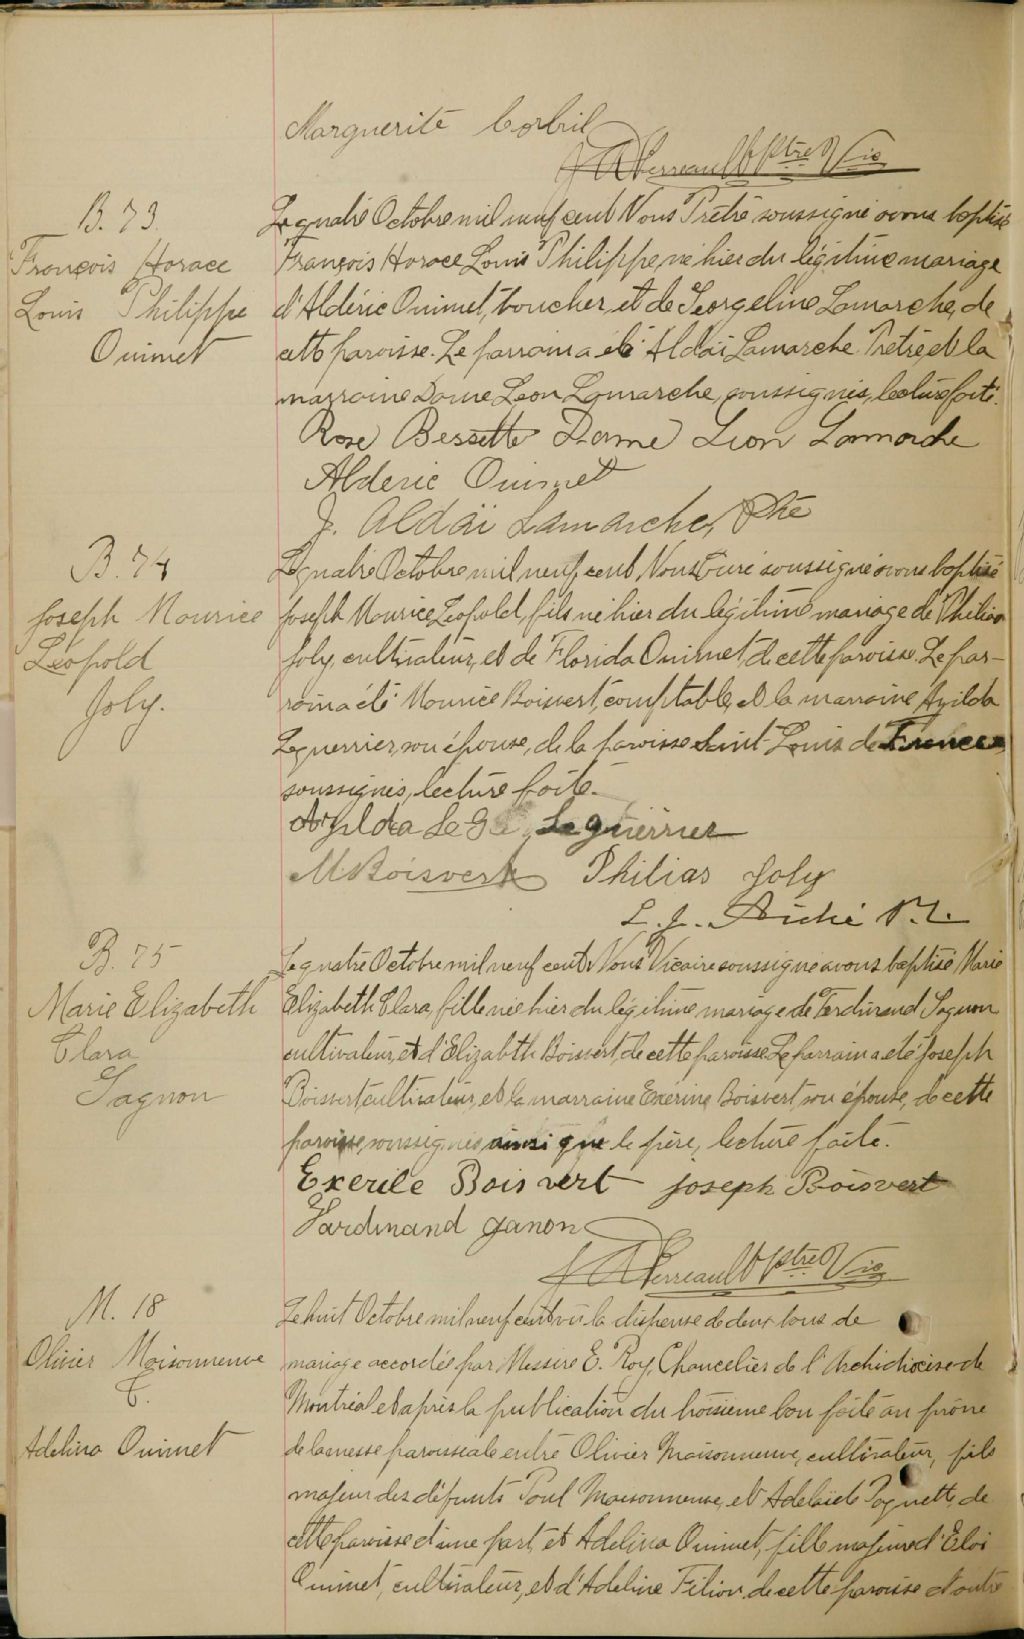 Marguerite Corbeil
J A Perreault Ptre Vic
B. 73.
François Horace
Louis Philippe
Ouimet
Le quatre Octobre mil neuf cent Nous Prêtre soussigné avons baptisé
François Horace Louis Philippe, né hier du légitime mariage
d'Aldéric Ouimet, boucher, et de Georgeline Lamarche, de
cette paroisse. Le parrain a été Aldaï Lamarche Prêtre, et la
marraine Dame Léon Lamarche, soussignés, lecture faite.
Rose Bessette Dame Léon Lamarche
Alderic Ouimet
J. Aldaï Lamarche, Ptre
B. 74
Joseph Maurice
Léopold
Joly.
Le quatre Octobre mil neuf cent, Nous Curé soussigné avons baptisé
Joseph Maurice Léopold, fils né hier du légitime mariage de Philias
Joly, cultivateur, et de Florida Ouimet de cette paroisse. Le par-
rain a été Maurice Boisvert, comptable, et la marraine Azilda
Leguerrier, son épouse, de la paroisse Saint Louis de France
soussignés, lecture faite.
Azilda Le G Leguerrier
M Boisvert Philias Joly
L. J. Piché Ptre
B. 75
Marie Elizabeth
Clara
Gagnon
Le quatre Octobre mil neuf cent Nous Vicaire soussigné avons baptisé Marie
Elizabeth Clara, fille née hier du légitime mariage de Ferdinand Gagnon
cultivateur, et d'Elizabeth Boisvert, de cette paroisse. Le parrain a été Joseph
Boisvert, cultivateur, et la marraine Exérine Boisvert, son épouse, de cette
paroisse, soussignés, ainsi que le père, lecture faite.
Exerile Boisvert Joseph Boisvert
Fardinand ganon
J A Perreault Ptre Vic
M. 18
Olivier Maisonneuve
&
Adelina Ouimet
Le huit Octobre mil neuf cent vu la dispense de deux bans de
mariage accordée par Messire E. Roy, Chancelier de l'Archidiocèse de
Montréal et après la publication du troisième ban faite au prône
de la messe paroissiale entre Olivier Maisonneuve, cultivateur, fils
majeur des défunts Paul Maisonneuve, et Adelaïde Paquette, de
cette paroisse d'une part, et Adelina Ouimet, fille majeure d'Eloi
Ouimet, cultivateur, et d'Adeline Filion, de cette paroisse d'autre